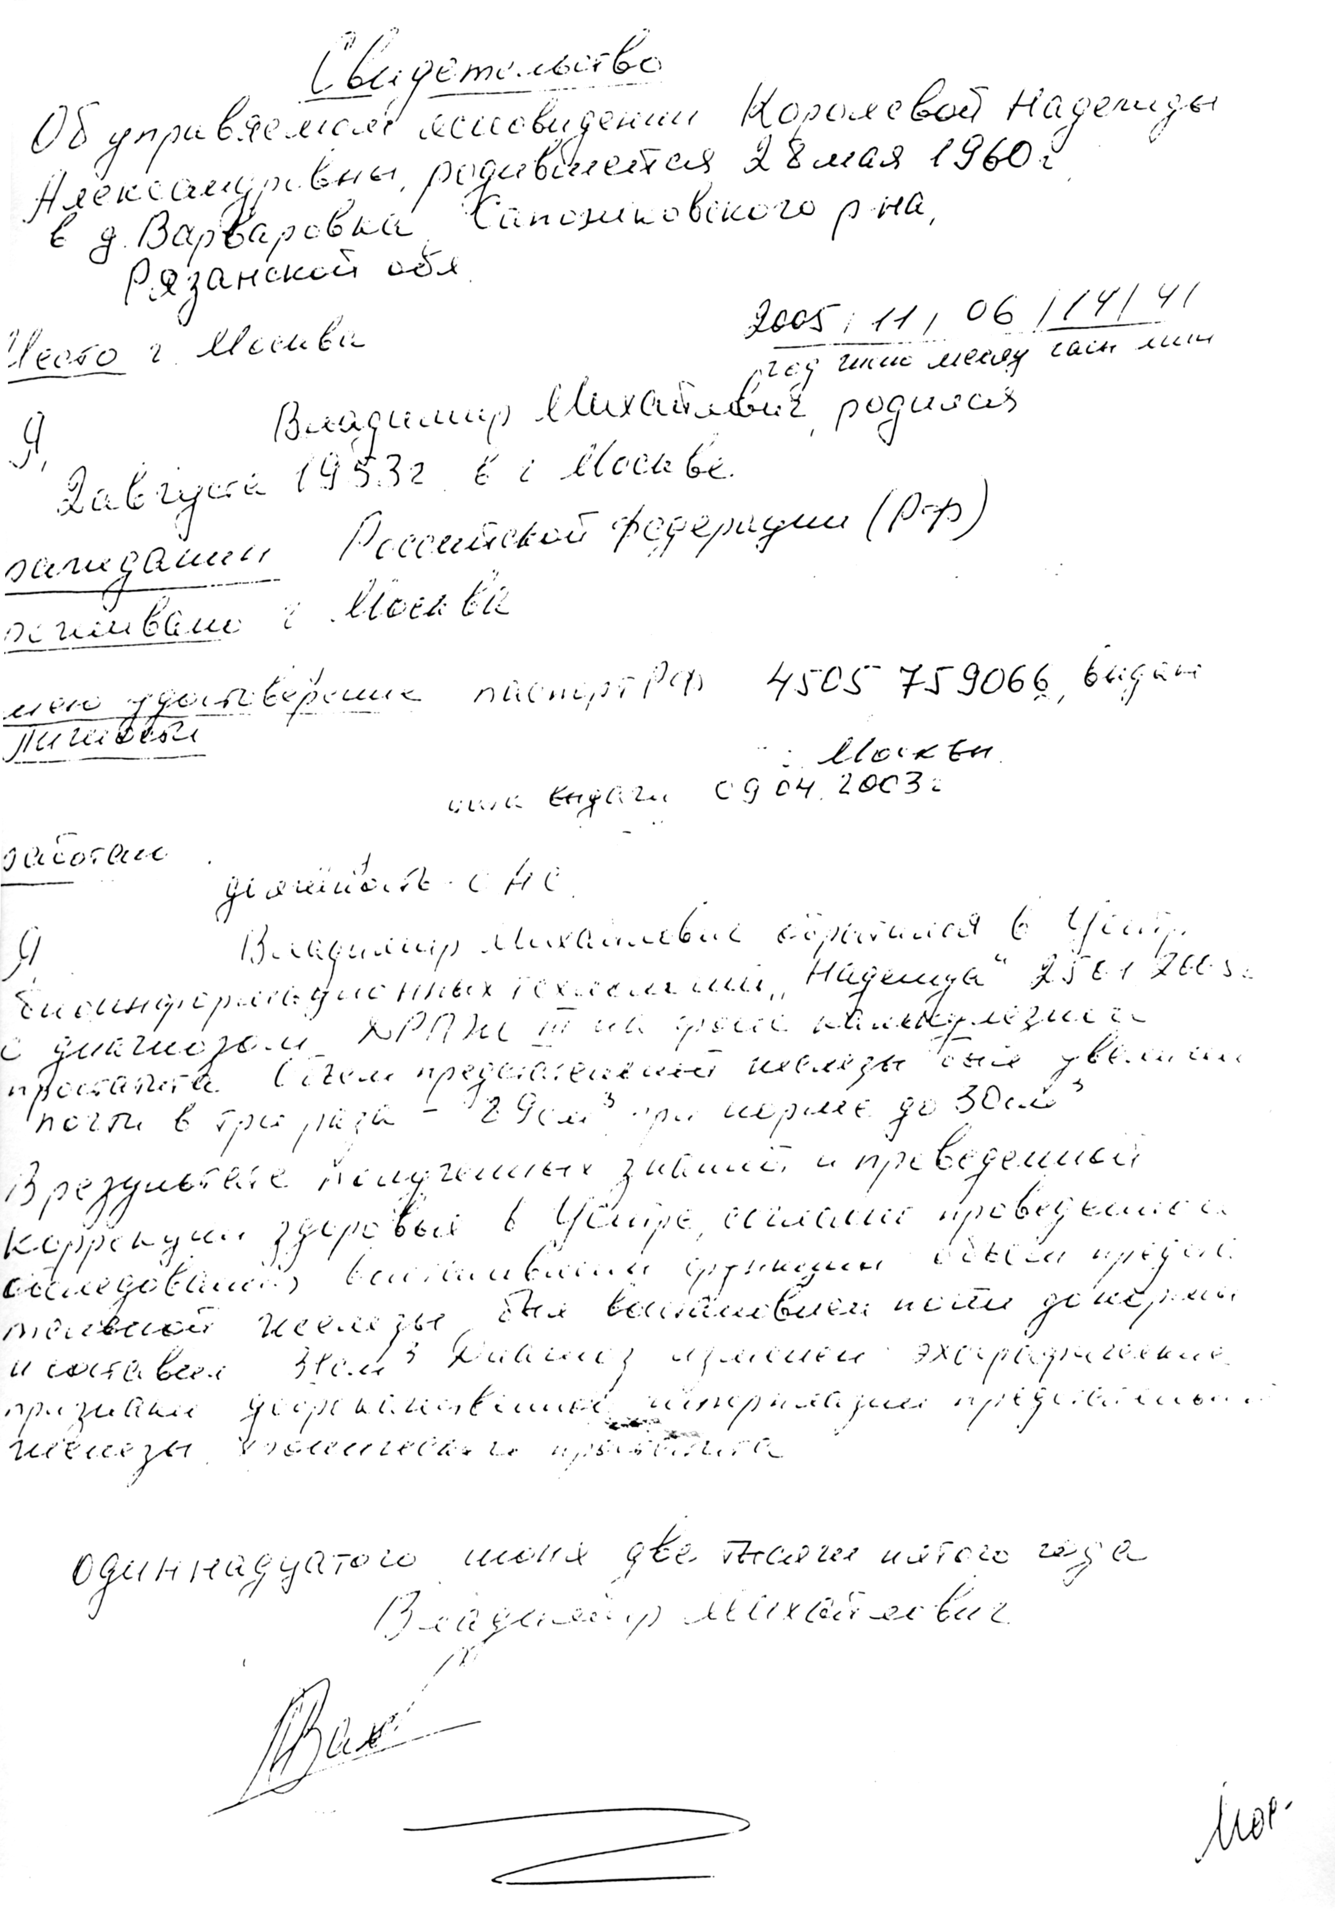 Свидетельство
Об управляемом ясновидении Королевой Надежды
Александровны, родившейся 28 мая 1960г.
в д. Варваровка Сапожковского р-на,
Рязанской обл.
Место г. Москва
2005 / 11 / 06 / 14 / 41
год число месяц часы мин
Я, Владимир Михайлович, родился
2 августа 1953г. в г. Москве.
гражданин Российской Федерации (РФ)
проживаю г. Москва
мою удостоверение паспорт РФ 4505 759066, выдан
личность
г. Москвы
дата выдачи 09.04.2003г
работаю
должность - СНС.
Я, Владимир Михайлович обратился в Центр
биоинформационных технологий "Надежда" 25.01.2005г.
с диагнозом ХРПЖ III на фоне калькулезного
простатита. Объем предстательной железы был увеличен
почти в три раза - 89см³ при норме до 30см³
В результате полученных знаний и проведенной
коррекции здоровья в Центре, согласно проведенного
обследования, восстановлены функции объем предста
тельной железы был восстановлен почти до нормы
и составил 31см³ Диагноз изменен: эхографические
признаки доброкачественной гиперплазии предстательной
железы, хронического простатита
одиннадцатого июня две тысячи пятого года
Владимир Михайлович